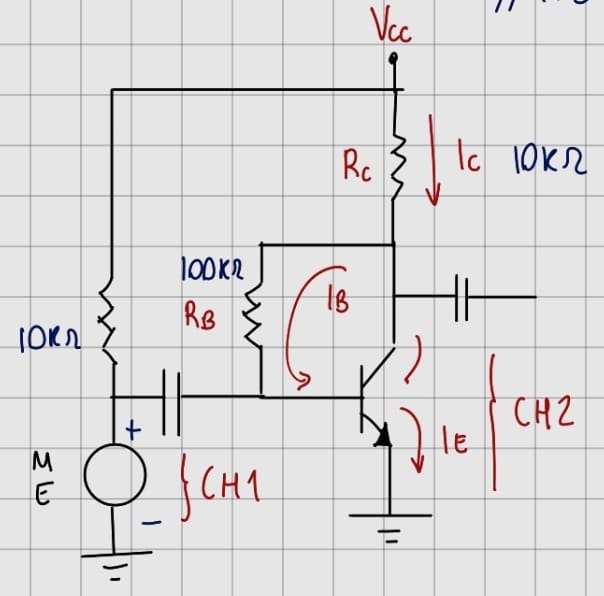 Vcc
Rc
Ic
10KΩ
100KΩ
RB
IB
10KΩ
+
ME
CH1
-
IE
CH2